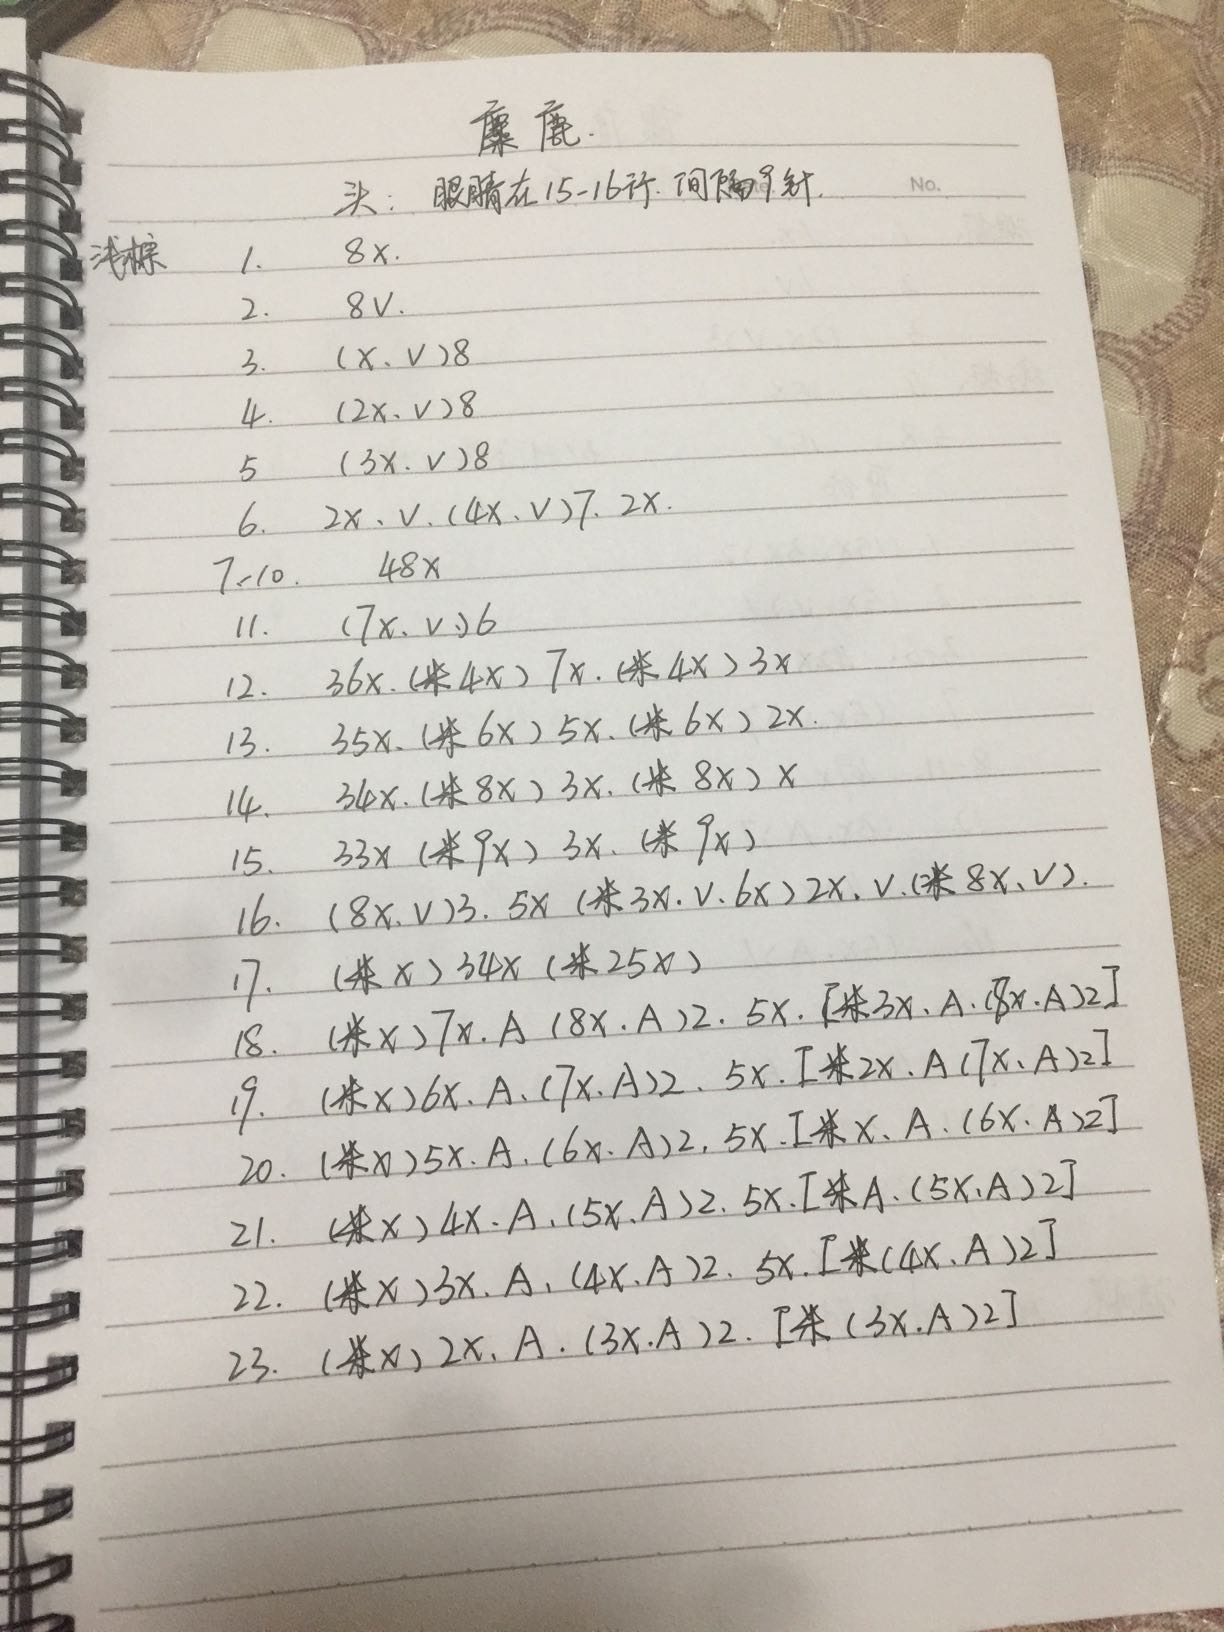 麋鹿.
头: 眼睛在15-16行.间隔9针.
No.
浅棕 1. 8X.
2. 8V.
3. (X、V)8
4. (2X、V)8
5 (3X.V)8
6. 2X、V.(4X、V)7. 2X.
7-10. 48X
11. (7X、V、)6
12. 36X.(米4X)7X.(米4X)3X
13. 35X、(米6X)5X.(米6X)2X.
14. 34X.(米8X)3X.(米8X)X
15. 33X(米9X)3X.(米9X)
16. (8X、V)3. 5X(米3X.V.6X)2X、V.(米8X、V).
17. (米X)34X(米25X)
18. (米X)7X.A(8X.A)2. 5X.[米3X、A.(8X.A)2]
19. (米X)6X、A、(7X、A)2、5X.[米2X、A(7X、A)2]
20. (米X)5X.A、(6X、A)2. 5X.[米X、A.(6X.A)2]
21. (米X)4X.A、(5X、A)2. 5X.[米A.(5X、A)2]
22. (米X)3X.A、(4X.A)2. 5X.[米(4X、A)2]
23. (米X)2X、A.(3X.A)2.[米(3X.A)2]